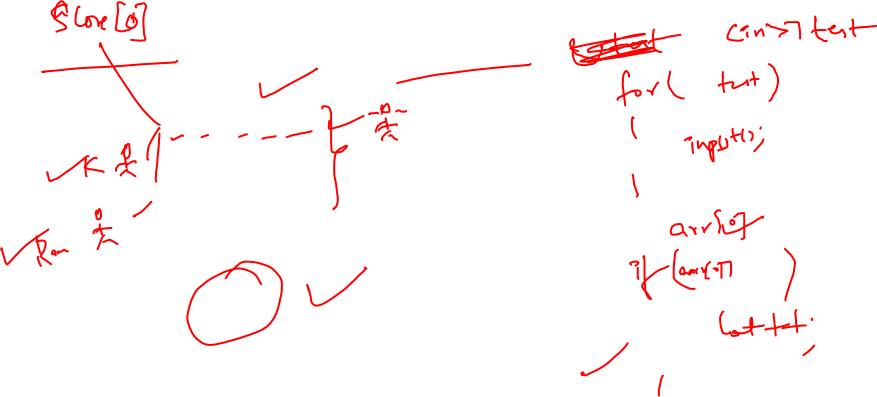 Score[0]
K
Ram
cin>>test
for( test)
{
input();
}
arr[0]
if(arr[0] )